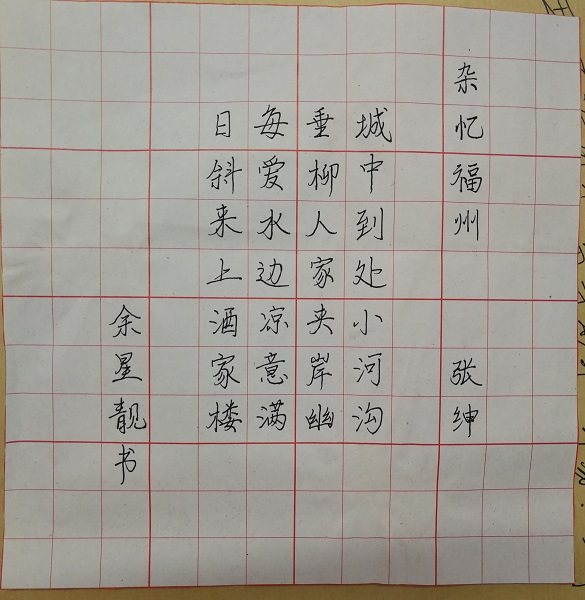 杂忆福州 张绅
城中到处小河沟
垂柳人家夹岸幽
每爱水边凉意满
日斜来上酒家楼
余星靓书